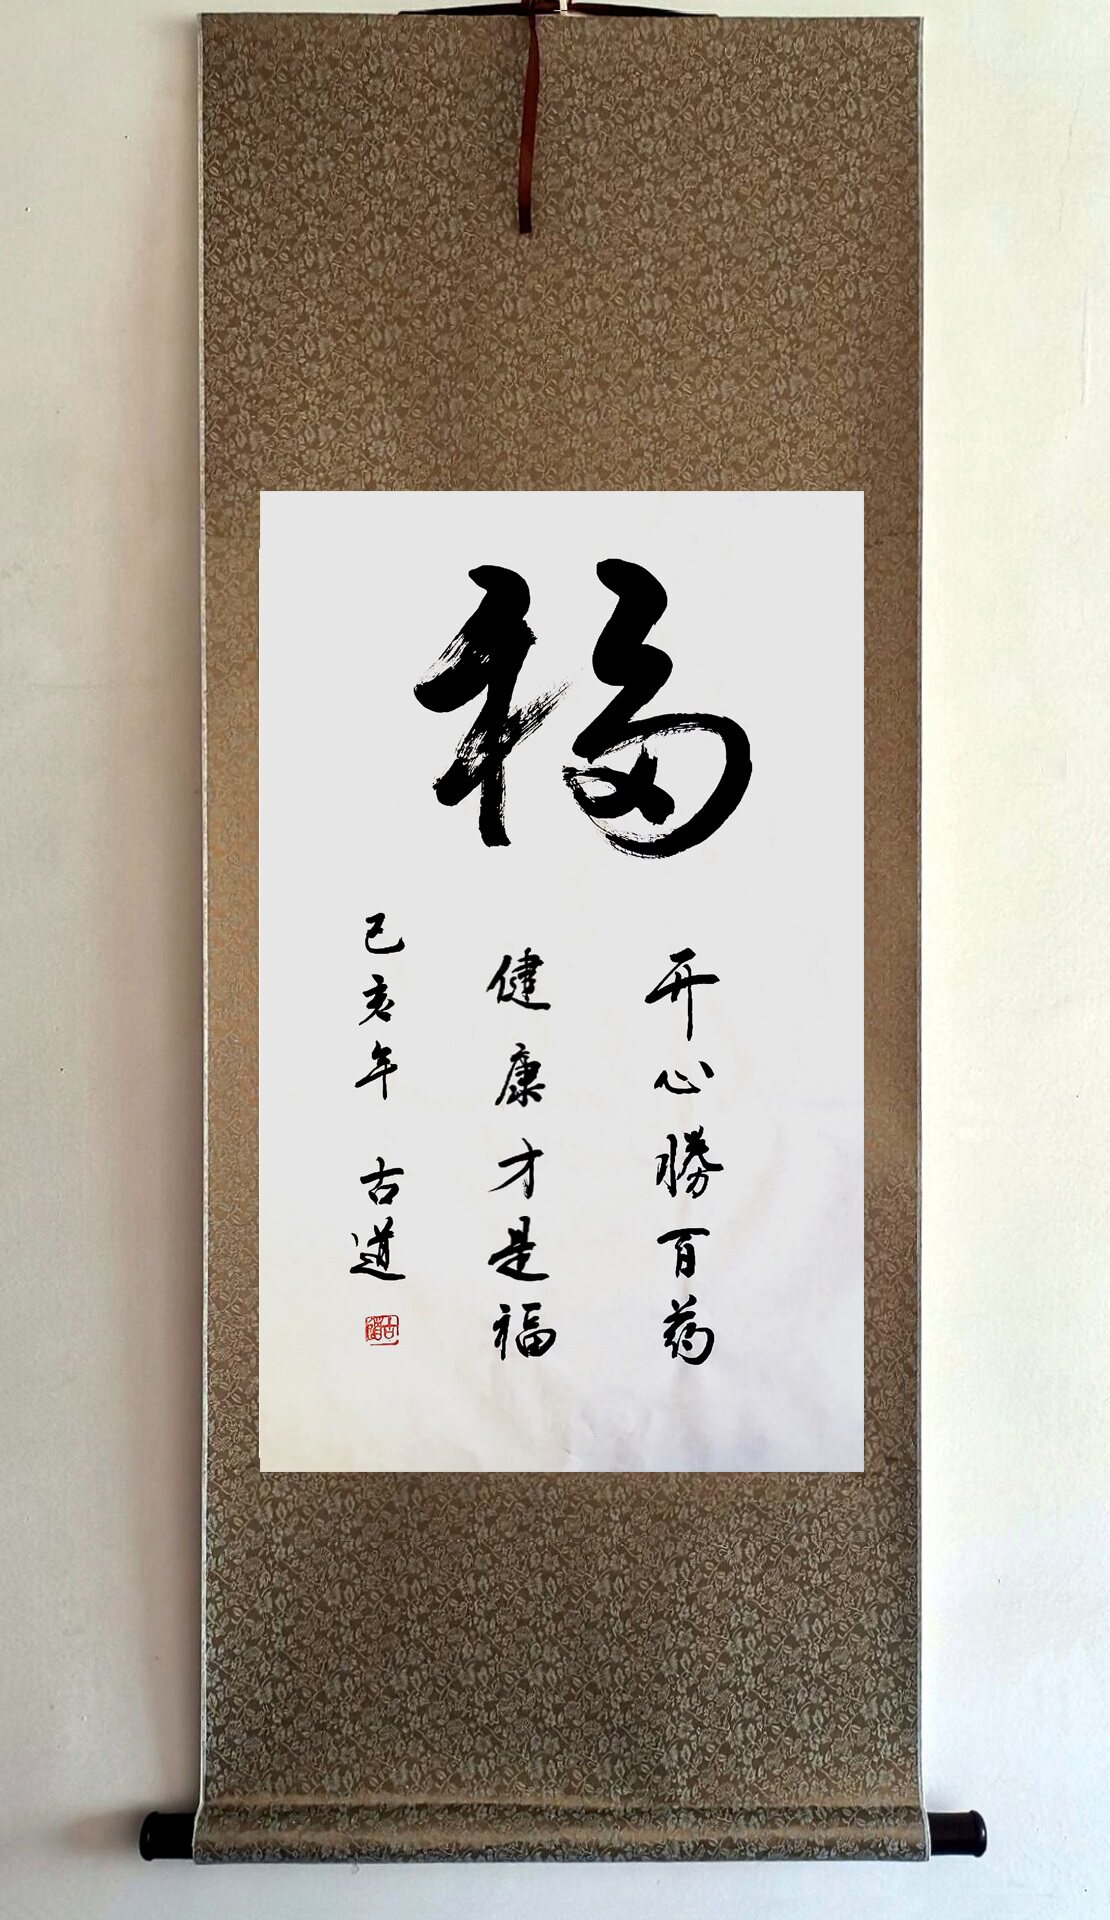 福
开心勝百药
健康才是福
己亥年 古道
古道